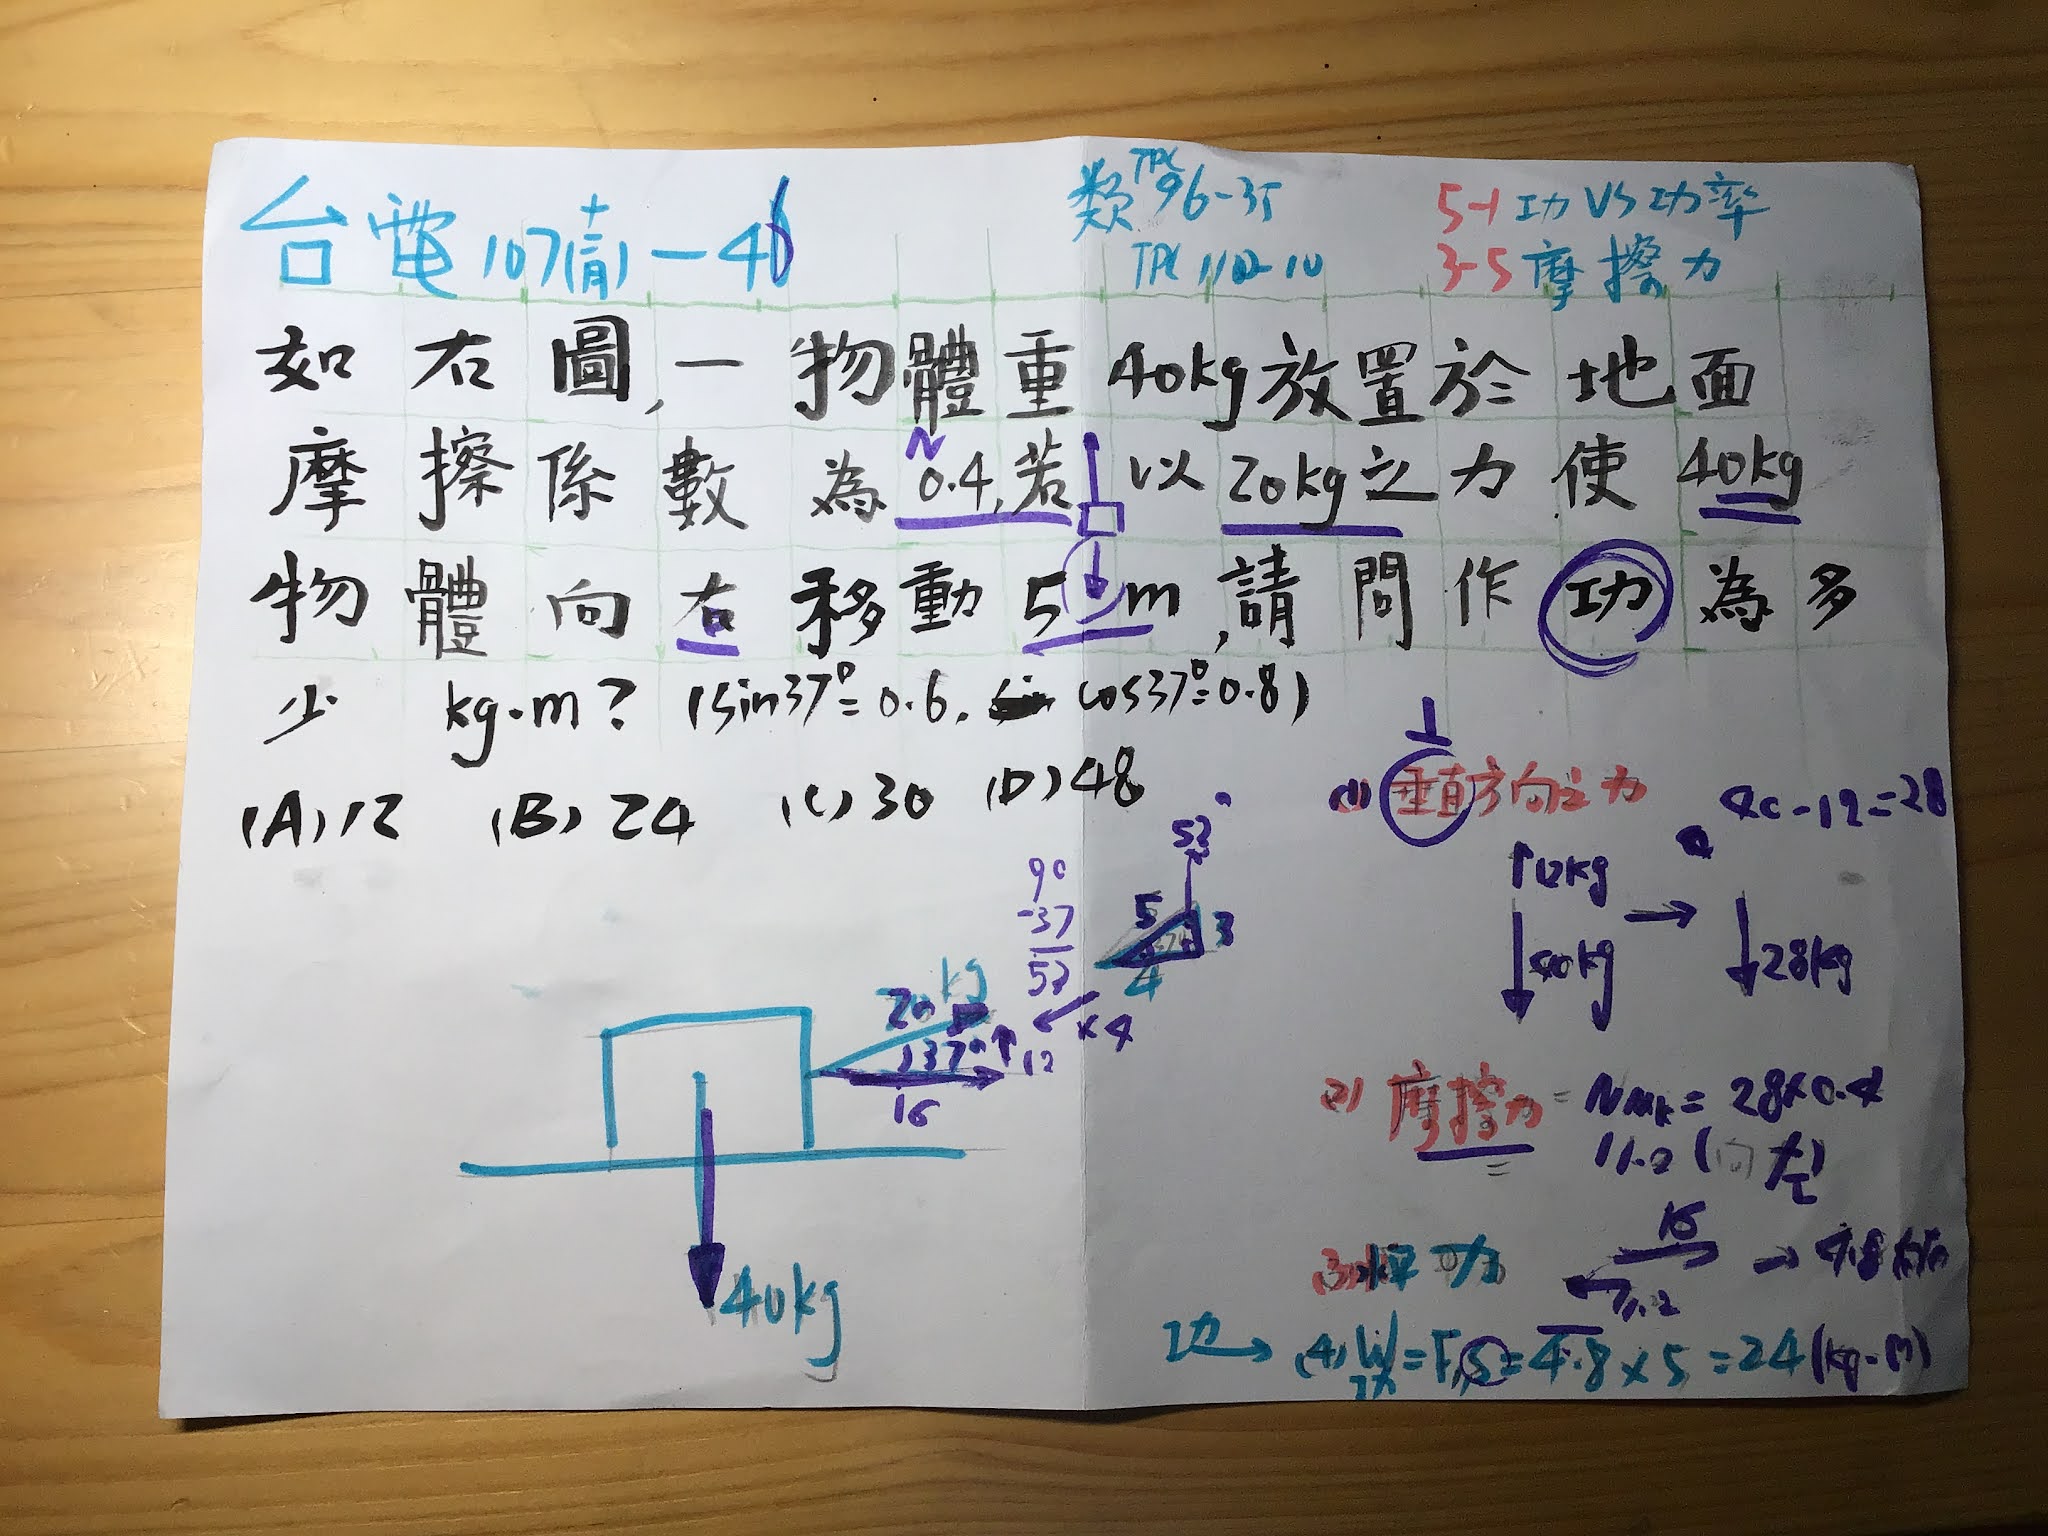 台電107(十二月)-46
類TPC96-35
TPC110-10
5-1功VS功率
3-5摩擦力
如右圖,一物體重40kg放置於地面
摩擦係數為0.4,若以20kg之力使40kg
物體向右移動5m,請問作功為多
少kg·m?(sin37°=0.6, cos37°=0.8)
(A)12 (B)24 (C)30 (D)48
53°
90
-37
53
5
3
4
×4
20kg
37°
12
16
40kg
(1)垂直方向之力
40-12=28
12kg
40kg
28kg
(2)摩擦力=Nμk=28×0.4
11.2(向左)
16
11.2
4.8向右
功→(4)W=F·S=4.8×5=24(kg-m)